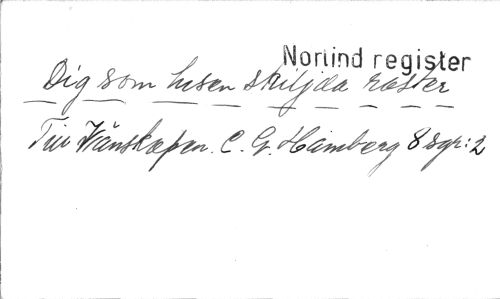 Norlind register
Dig som husen skiljda röster
Till Vänskapen. C. G. Hamberg 8 sgr: 2